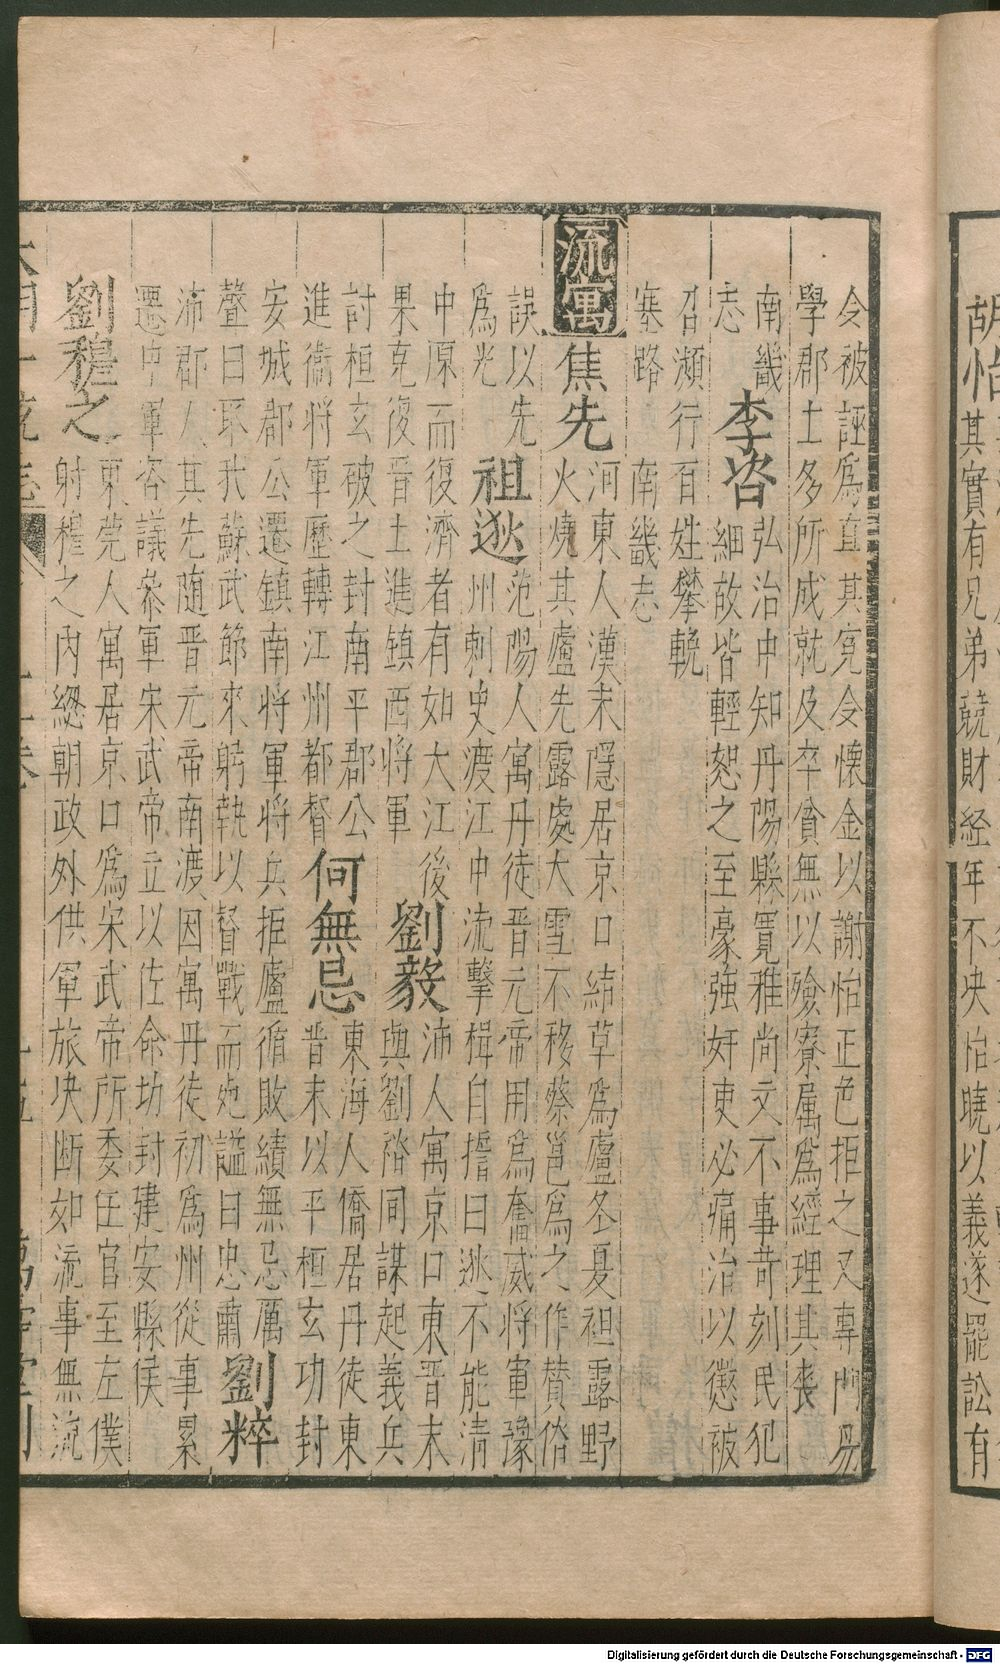 胡怡
其實有兄弟競財經年不决怡曉以義遂罷訟有
令被誣爲直其冤令懷金以謝怡正色拒之又專門易
學郡士多所成就及卒貧無以殮寮属爲經理其喪
南畿
志
李咨
弘治中知丹陽縣寬雅尚文不事苛刻民犯
細故皆輕恕之至豪強奸吏必痛治以懲被
召瀕行百姓攀轅
塞路
南畿志
流寓
焦先
河東人漢末隱居京口結草爲廬冬夏袒露野
火燒其廬先露處大雪不移蔡邕爲之作贊俗
誤以先
爲光
祖逖
范陽人寓丹徒晋元帝用爲奮威將軍豫
州刺史渡江中流擊楫自誓曰逖不能清
中原而復濟者有如大江後
果克復晋土進鎮西將軍
劉毅
沛人寓京口東晋末
與劉裕同謀起義兵
討桓玄破之封南平郡公
進衛將軍歷轉江州都督
何無忌
東海人僑居丹徒東
晋末以平桓玄功封
安城郡公遷鎮南將軍將兵拒盧循敗績無忌厲
聲曰取我蘇武節來躬執以督戰而死謚曰忠肅
劉粹
沛郡人其先随晋元帝南渡因寓丹徒初爲州從事累
遷中軍咨議參軍宋武帝立以佐命功封建安縣侯
劉穆之
東莞人寓居京口爲宋武帝所委任官至左僕
射穆之内緫朝政外供軍旅决断如流事無流
大明一統志
卷
萬壽堂刊
Digitalisierung gefördert durch die Deutsche Forschungsgemeinschaft - DFG